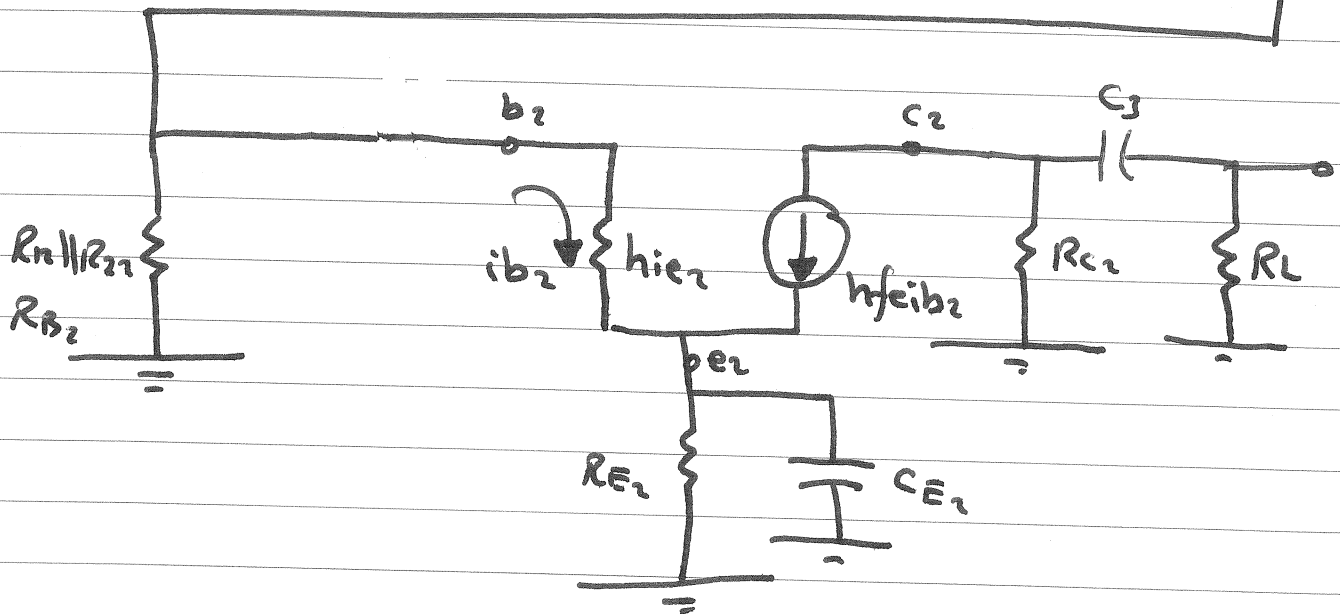 b₂
c₂
C₃
R₁₂||R₂₂
R_B₂
ib₂
hie₂
hfeib₂
Rc₂
RL
e₂
R_E₂
C_E₂